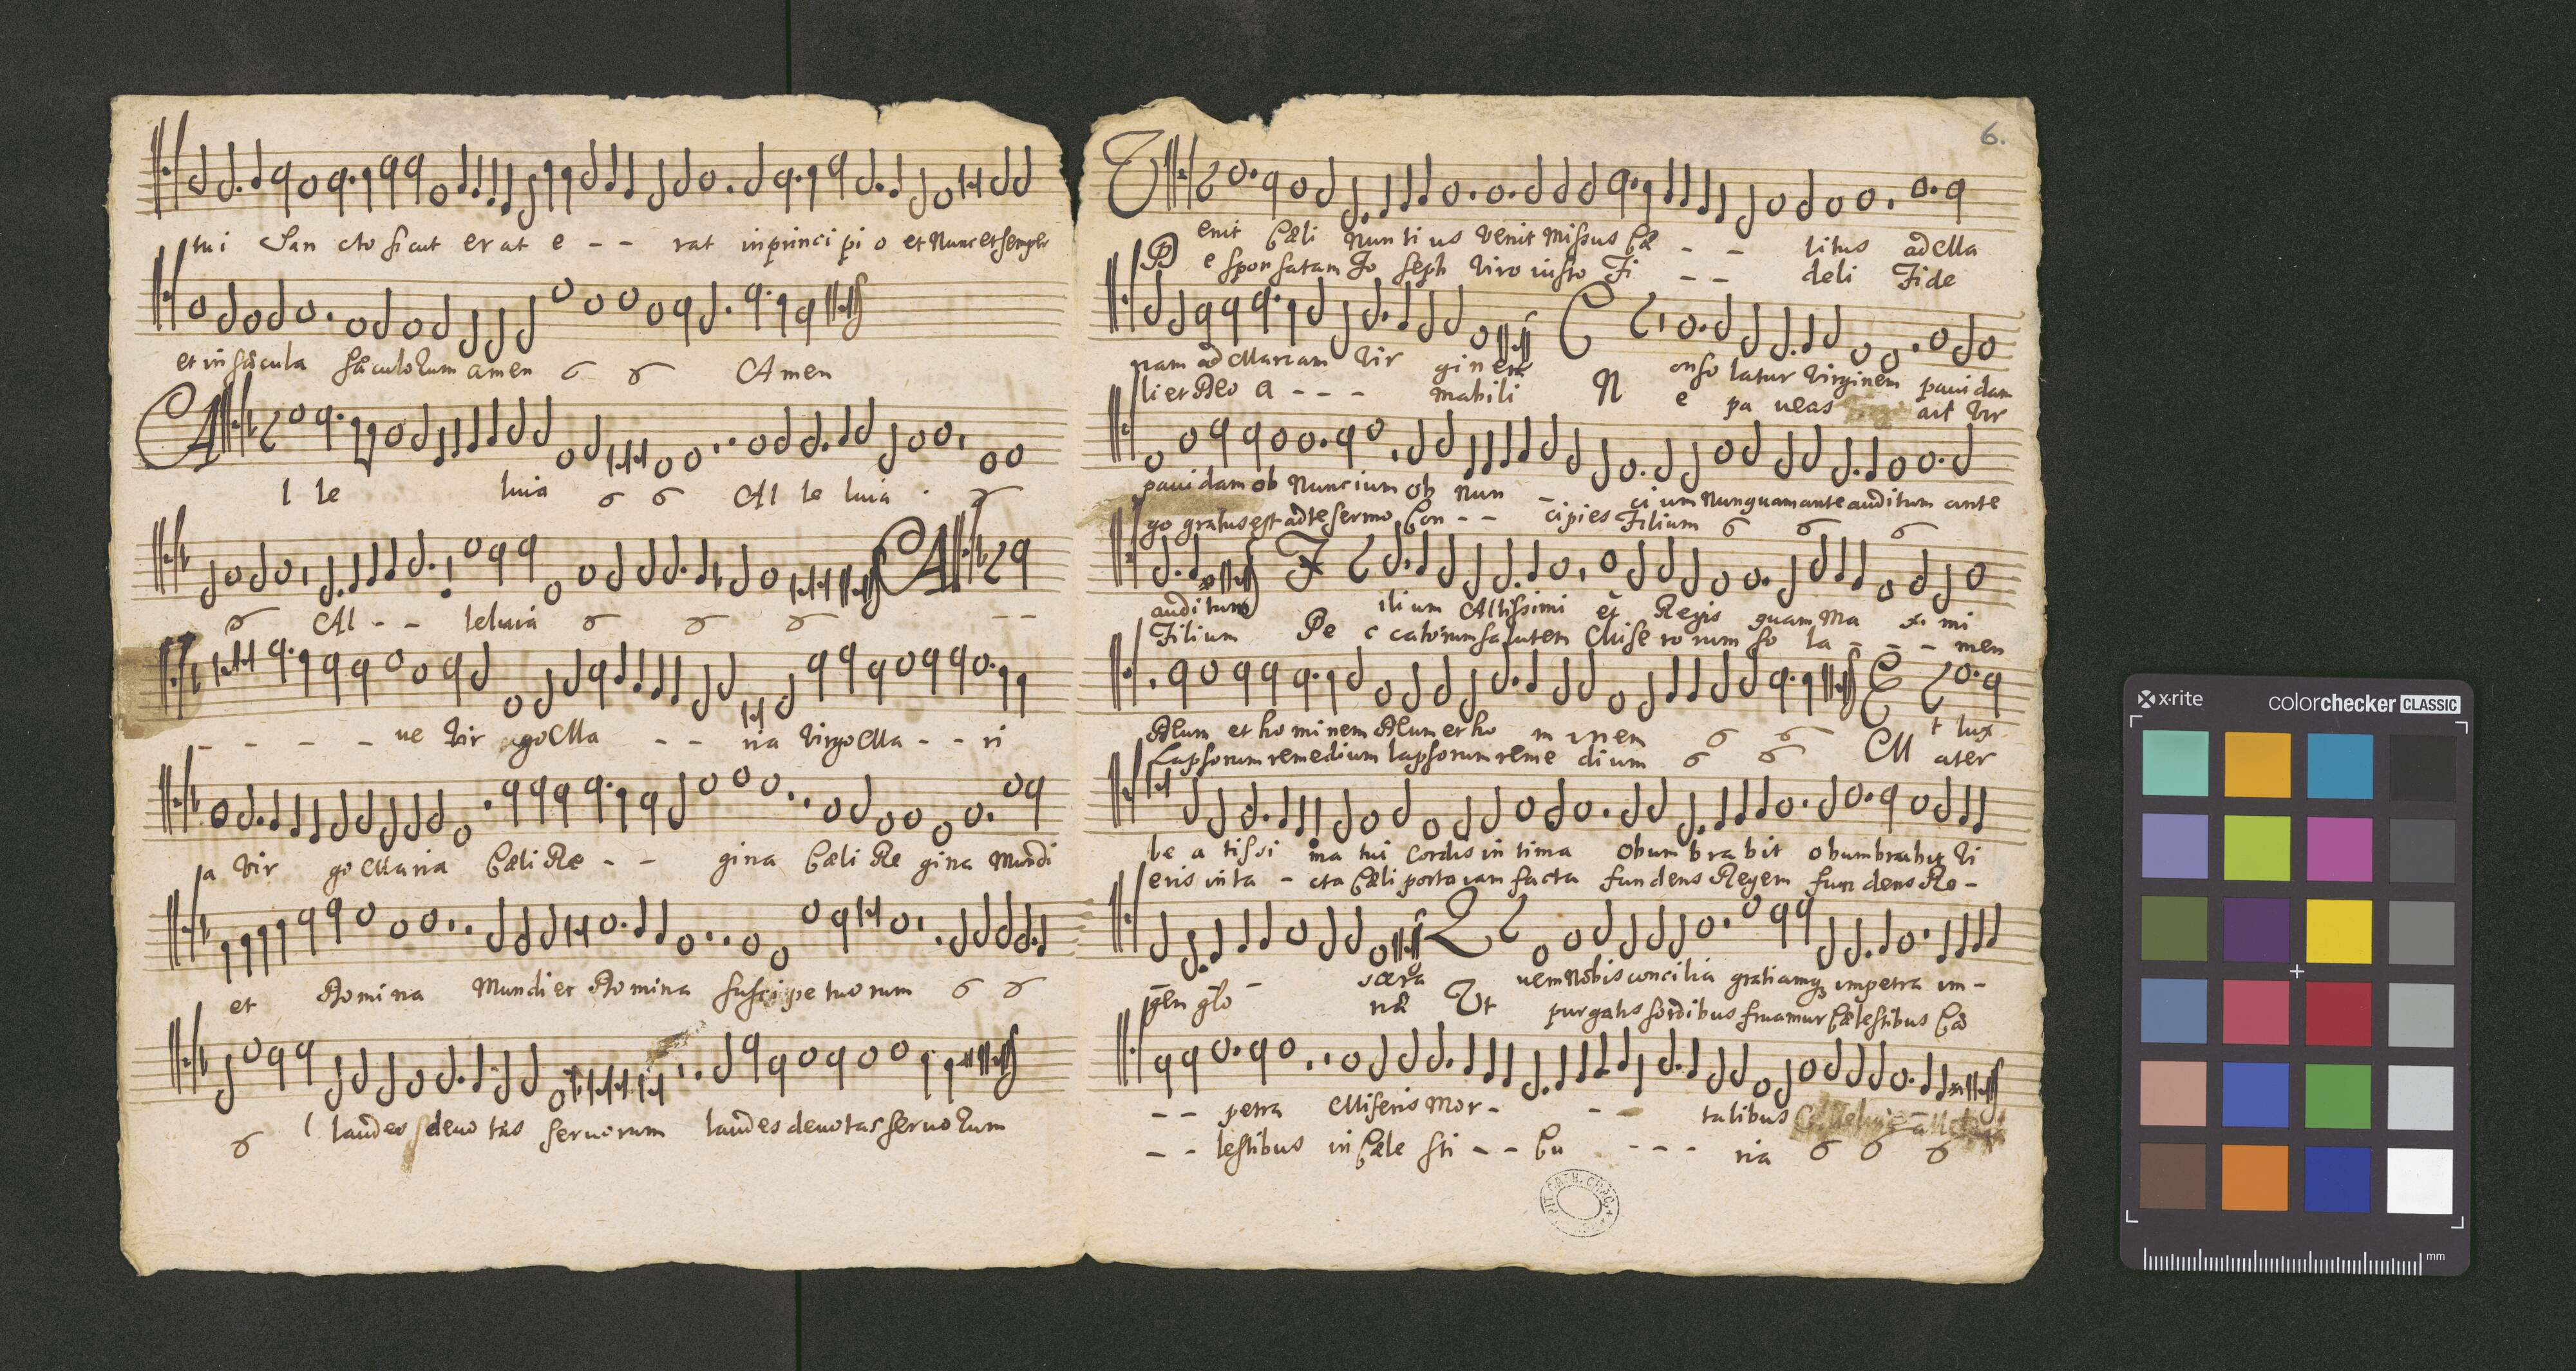 tui San cto sicut erat e - - rat in princi pi o et Nunc et semper
et in sæcula sæculorum amen Amen
Al le luia Al le luia
Al - - leluia - -
- - - - ue Vir go Ma - - ria Virgo Ma - - ri
a Vir go Maria Cæli Re - - gina Cæli Re gina Mundi
et Domina Mundi et Domina suscipe tuorum
laudes deuo tas seruorum laudes deuotas seruorum
6.
Venit Cæli Nunti us Venit Missus Cæ - - litus ad Ma
De sponsatam Jo seph Viro iusto Fi - - deli Fide
riam ad Mariam Vir ginem Conso latur Virginem pauidam
li et Deo a - - - mabili Ne pa ueas ait Vir
pauidam ob Nuncium ob nun - cium Nunquam ante auditum ante
go gratus est ad te sermo Con - - cipies Filium
auditum Filium Altissimi et Regis quam Ma xi mi
Filium Pe c catorum salutem Mise ro rum so la - - - men
Deum et ho minem Deum et ho m inem Et lux
Lapsorum remedium lapsorum reme dium Mater
be a tissi ma tui Cordis in tima Obum bra bit obumbrabit Vi
eris inta - cta Cæli porta iam facta fundens Regem fundens Re -
særa Quem Nobis concilia gratiamq impetra im -
gem glo - riæ Vt purgatis sordibus fruamur Cælestibus Cæ
- - petra Miseris Mor - - - talibus
- - lestibus in Cæle sti - - Cu - - - ria
x·rite colorchecker CLASSIC
mm